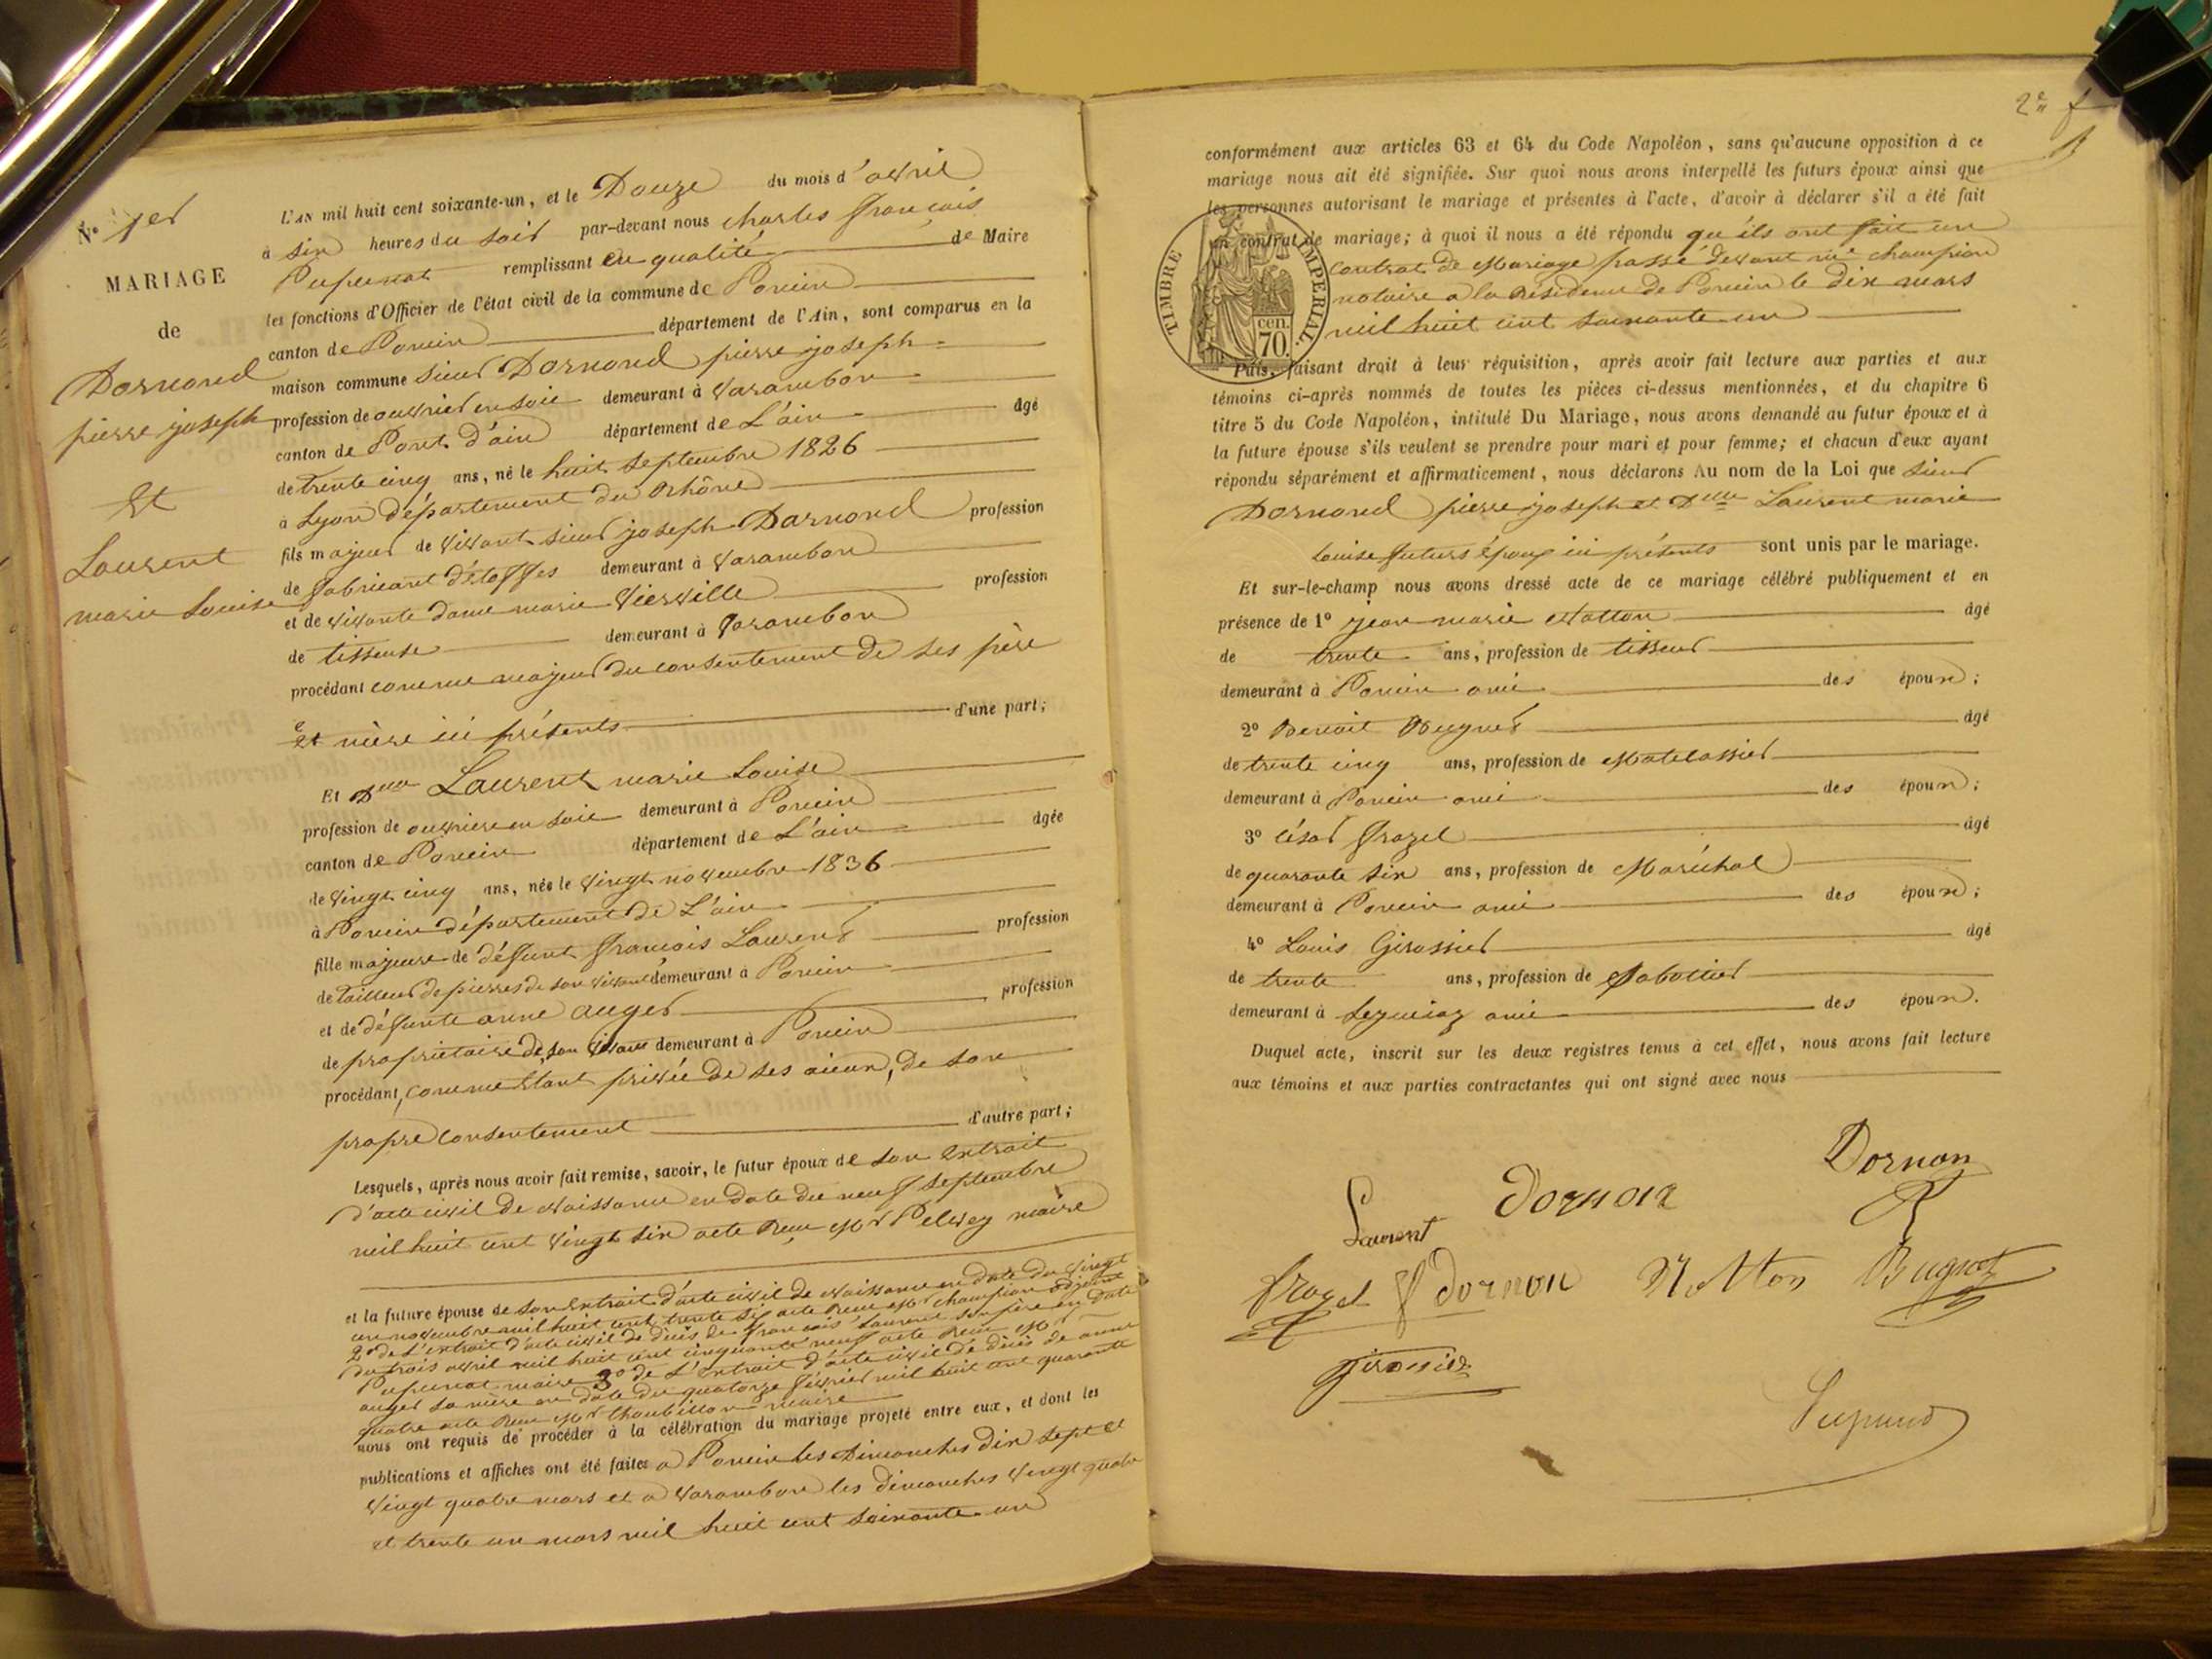 N° 1er
MARIAGE
de
Dornond
pierre joseph
Et
Laurent
marie Louise
L'AN mil huit cent soixante-un, et le Douze du mois d'avril
à six heures du soir par-devant nous charles françois
remplissant en qualité de Maire
les fonctions d'Officier de l'état civil de la commune de Poncin
canton de Poncin département de l'Ain, sont comparus en la
maison commune sieur Dornond pierre joseph
profession de ouvrier en soie demeurant à Varambon
canton de Pont d'ain département de L'ain âgé
de trente cinq ans, né le huit septembre 1826
à Lyon département du Rhône
fils majeur de vivant sieur joseph Dornond profession
de fabricant d'étoffes demeurant à Varambon
et de vivante dame marie Vierville profession
de tisseuse demeurant à Varambon
procédant comme majeur du consentement de ses père
et mère ici présents d'une part;
Et Delle Laurent marie Louise
profession de ouvriere en soie demeurant à Poncin
canton de Poncin département de L'ain âgée
de vingt cinq ans, née le vingt novembre 1836
à Poncin département de L'ain
fille majeure de défunt françois Laurent profession
de tailleur de pierres de son vivant demeurant à Poncin
et de défunte anne auger profession
de propriétaire de son vivant demeurant à Poncin
procédant, comme étant privée de ses aieux, de son
propre consentement d'autre part;
Lesquels, après nous avoir fait remise, savoir, le futur époux de son extrait
d'acte civil de naissance en date du neuf septembre
mil huit cent vingt six acte reçu Mr Pelvey maire
et la future épouse de son extrait d'acte civil de naissance en date du vingt
un novembre mil huit cent trente six acte reçu Mr champion adjoint
2° de L'extrait d'acte civil de décès de françois Laurent son père en date
du trois avril mil huit cent cinquante neuf acte reçu Mr
maire 3° de L'extrait d'acte civil de décès de anne
auger sa mère en date du quatorze février mil huit cent quarante
quatre acte reçu Mr maire
nous ont requis de procéder à la célébration du mariage projeté entre eux, et dont les
publications et affiches ont été faites a Poncin les Dimanches dix sept et
vingt quatre mars et a Varambon les dimanches vingt quatre
et trente un mars mil huit cent soixante un
2e f
conformément aux articles 63 et 64 du Code Napoléon, sans qu'aucune opposition à ce
mariage nous ait été signifiée. Sur quoi nous avons interpellé les futurs époux ainsi que
les personnes autorisant le mariage et présentes à l'acte, d'avoir à déclarer s'il a été fait
un contrat de mariage; à quoi il nous a été répondu qu'ils ont fait un
contrat de Mariage passé devant me champion
notaire a la résidence de Poncin le dix mars
mil huit cent soixante un
TIMBRE IMPERIAL.
cen.
70.
Puis, faisant droit à leur réquisition, après avoir fait lecture aux parties et aux
témoins ci-après nommés de toutes les pièces ci-dessus mentionnées, et du chapitre 6
titre 5 du Code Napoléon, intitulé Du Mariage, nous avons demandé au futur époux et à
la future épouse s'ils veulent se prendre pour mari et pour femme; et chacun d'eux ayant
répondu séparément et affirmativement, nous déclarons Au nom de la Loi que sieur
Dornond pierre joseph et Delle Laurent marie
Louise futurs époux ici présents sont unis par le mariage.
Et sur-le-champ nous avons dressé acte de ce mariage célébré publiquement et en
présence de 1° jean marie Notton âgé
de trente ans, profession de tisseur
demeurant à Poncin ami des époux;
2° Benoit Bugnot âgé
de trente cinq ans, profession de Matelassier
demeurant à Poncin ami des époux;
3° césar frazel âgé
de quarante six ans, profession de Maréchal
demeurant à Poncin ami des époux;
4° Louis Girossier âgé
de trente ans, profession de Sabotier
demeurant à Leymiaz ami des époux.
Duquel acte, inscrit sur les deux registres tenus à cet effet, nous avons fait lecture
aux témoins et aux parties contractantes qui ont signé avec nous
Dornon
Laurent dornon
frazel dornon Notton Bugnot
girossier